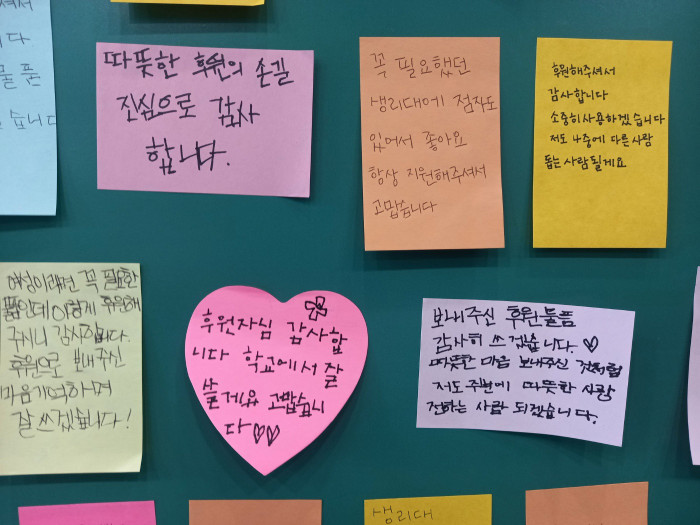 셔서
다
물품
습니다
따뜻한 후원의 손길
진심으로 감사
합니다.
꼭 필요했던
생리대에 점자도
있어서 좋아요
항상 지원해주셔서
고맙습니다
후원해주셔서
감사합니다
소중히사용하겠습니다
저도 나중에 다른사람
돕는사람될게요
여성이라면 꼭 필요한
품인데 이렇게 후원해
주시니 감사합니다.
후원으로 보내주신
마음기억하며
잘 쓰겠습니다!
후원자님 감사합
니다 학교에서 잘
쓸게요 고맙습니
다♡♡
보내주신 후원물품
감사히 쓰겠습니다.♡
따뜻한 마음 보내주신 것처럼
저도주변에 따뜻한 사랑
전하는 사람 되겠습니다.
생리대